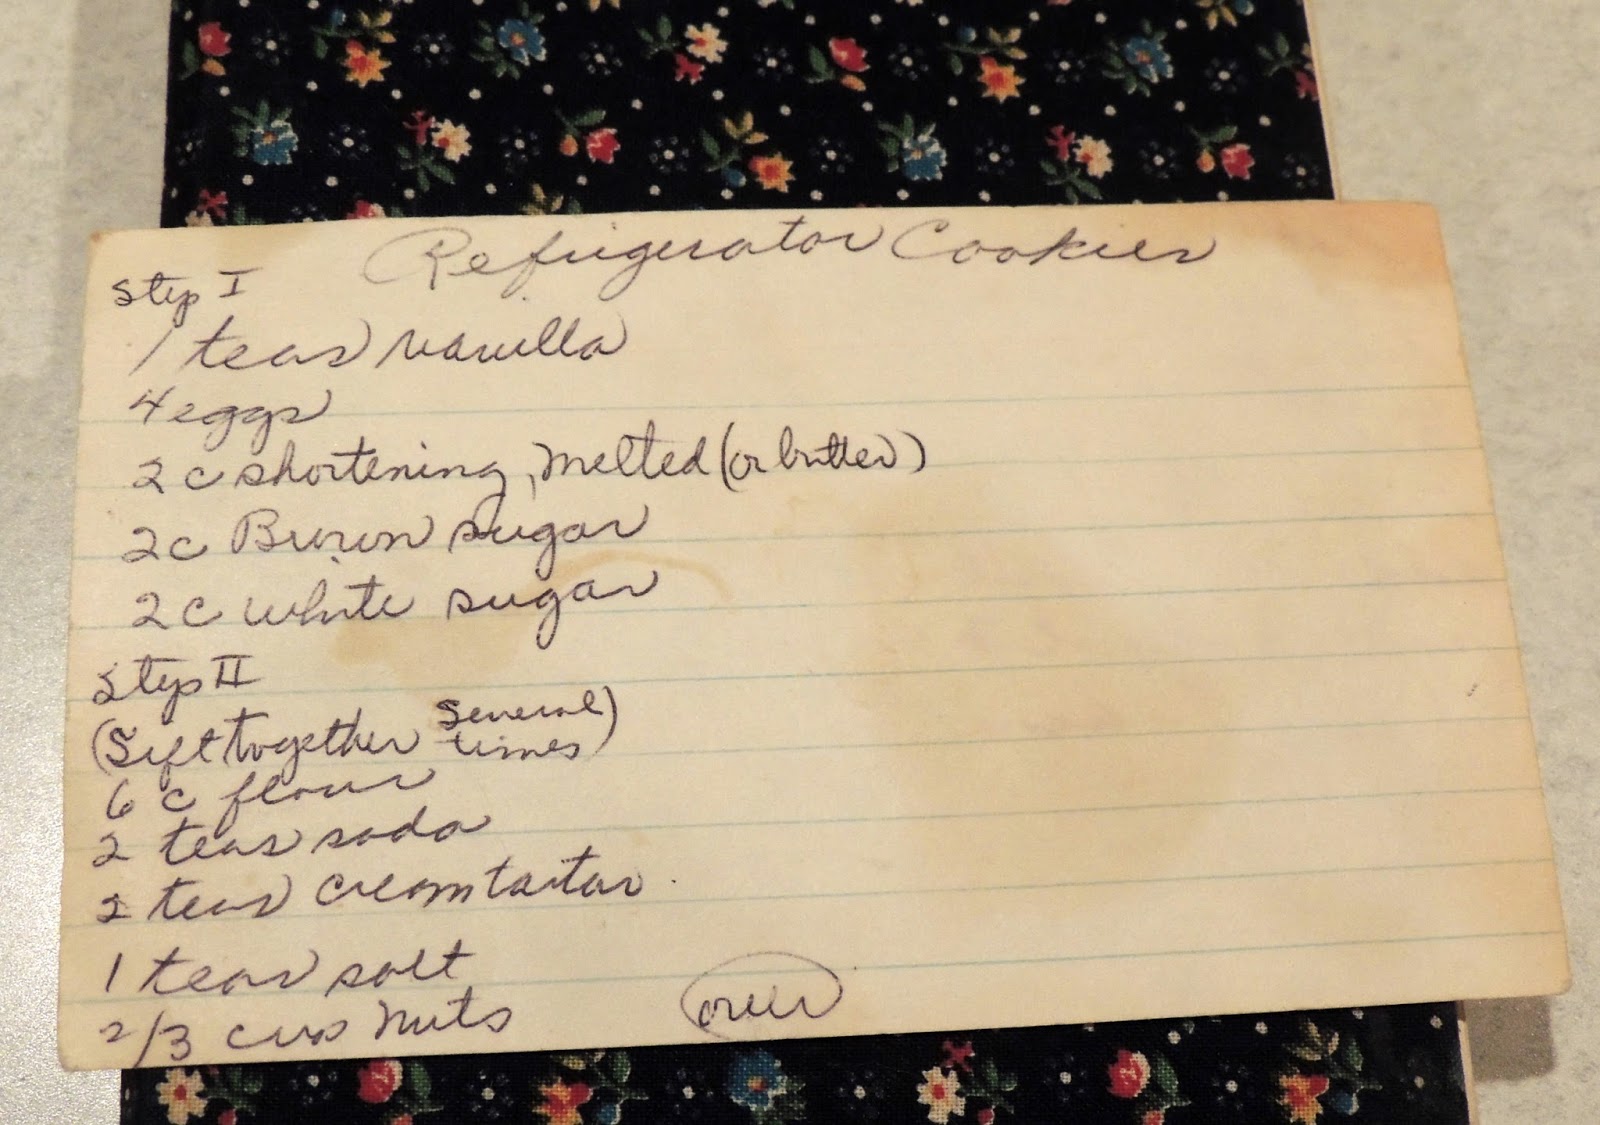 Refrigerator Cookies
Step I
1 teas vanilla
4 eggs
2 c shortening, melted (or butter)
2 c Brown sugar
2 c white sugar
Step II
(Sift together several times)
6 c flour
2 teas soda
2 teas cream tartar
1 teas salt
2/3 cup nuts
over